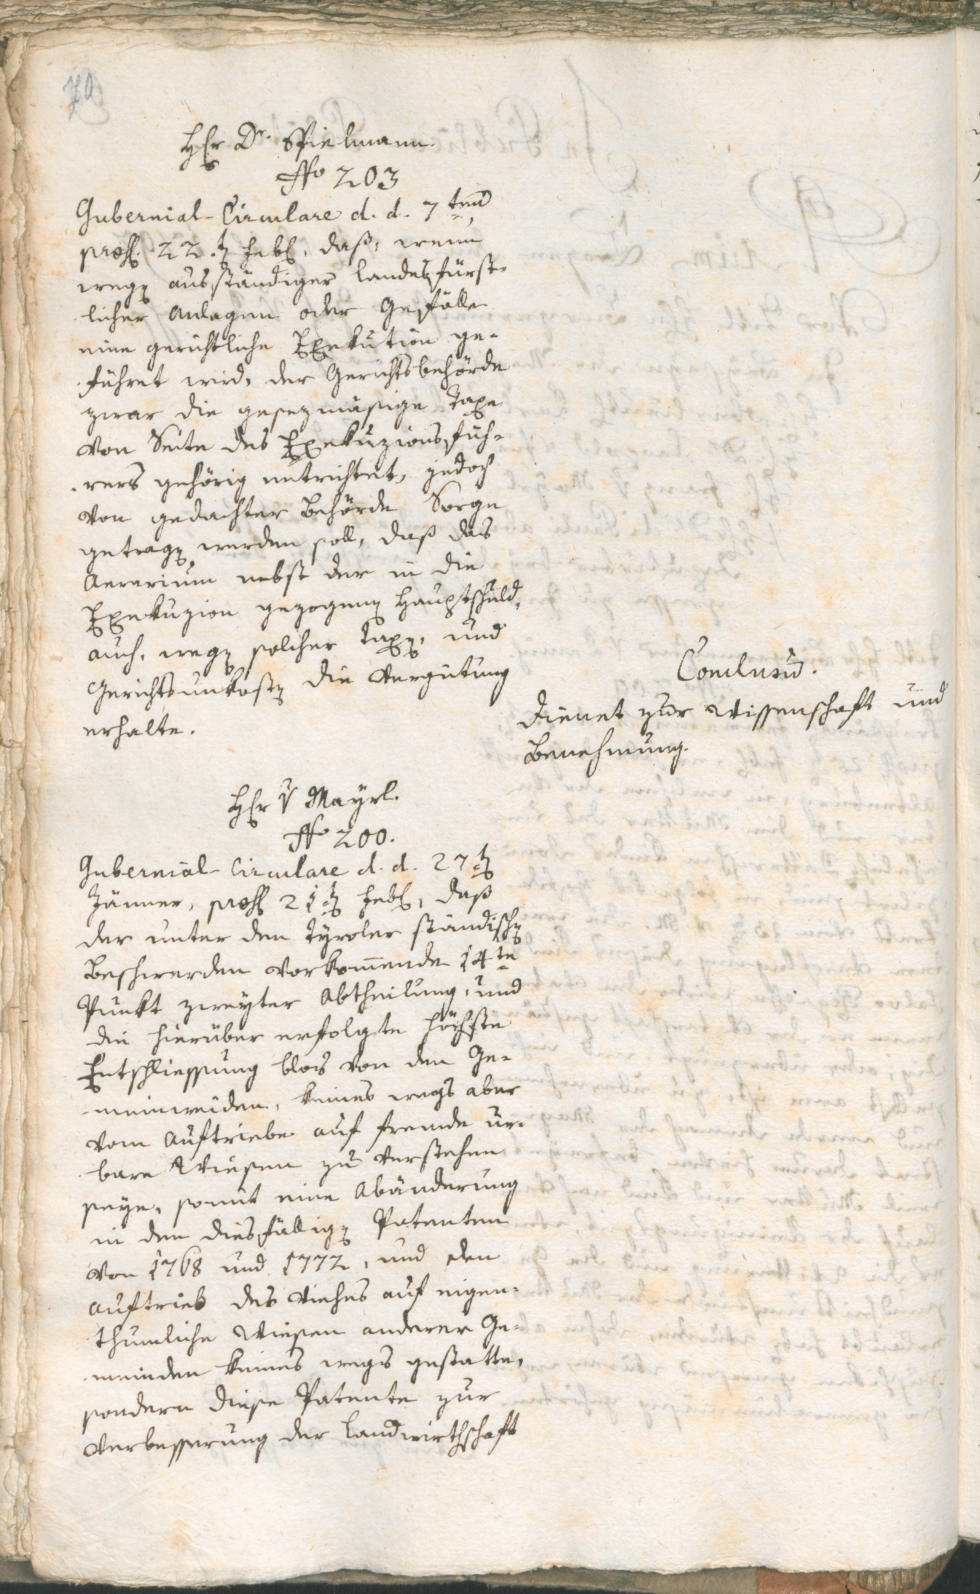 70
Hr Dr. Spielmann.
No 203
Gubernial-Circulare d. d. 7ten
præs. 22. Febr., daß, wenn
wegen ausständiger landesfürst-
licher Anlagen oder Gefälle
eine gerichtliche Exekution ge-
führet wird, der Gerichtsbehörde
zwar die gesezmäsige Taxe
von Seite des Exekuzionsfüh-
rers gehörig entrichtet, jedoch
von gedachter Behörde Sorge
getragen werden soll, daß das
Aerarium nebst der in die
Exekuzion gezogenen Hauptschuld,
auch, wegen solcher Taxen, und
Gerichtsunkosten die Vergütung
erhalte.
Conclusum.
Dienet zur Wissenschaft und
Benehmung.
Hr v Mayrl.
No 200.
Gubernial-Circulare d. d. 27ten
Jänner, præs 21ten Febr, daß
der unter den Tyroler ständischen
Beschwerden vorkommende 14te
Punkt zweyter Abtheilung, und
die hierüber erfolgte höchste
Entschliessung blos von den Ge-
meinweiden, keines wegs aber
vom Auftriebe auf fremde ur-
bare Wiesen zu verstehen
seye, somit eine Abänderung
in den diesfälligen Patenten
von 1768 und 1772, und den
Auftrieb des Viehes auf eigen-
thumliche Wiesen anderer Ge-
meinden keines wegs gestatte,
sondern diese Patente zur
Verbesserung der Landwirthschaft